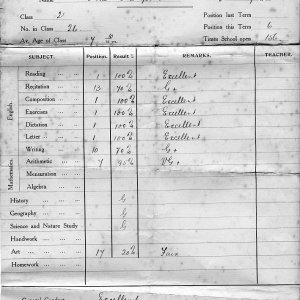 Class 2
Position last Term
No. in Class 26
Position this Term 6
Av. Age of Class 7
Times School open 156
SUBJECT. Position. Result % REMARKS. TEACHER.
English.
Reading 1 100% Excellent
Recitation 13 70% G+
Composition 1 100% Excellent
Exercises 1 100% Excellent
Dictation 1 100% Excellent
Letter 1 100% Excellent
Writing 10 70% G+
Mathematics.
Arithmetic 7 90% VG+
Mensuration
Algebra
History G
Geography G
Science and Nature Study G
Handwork
Art 17 50% Fair
Homework
Excellent